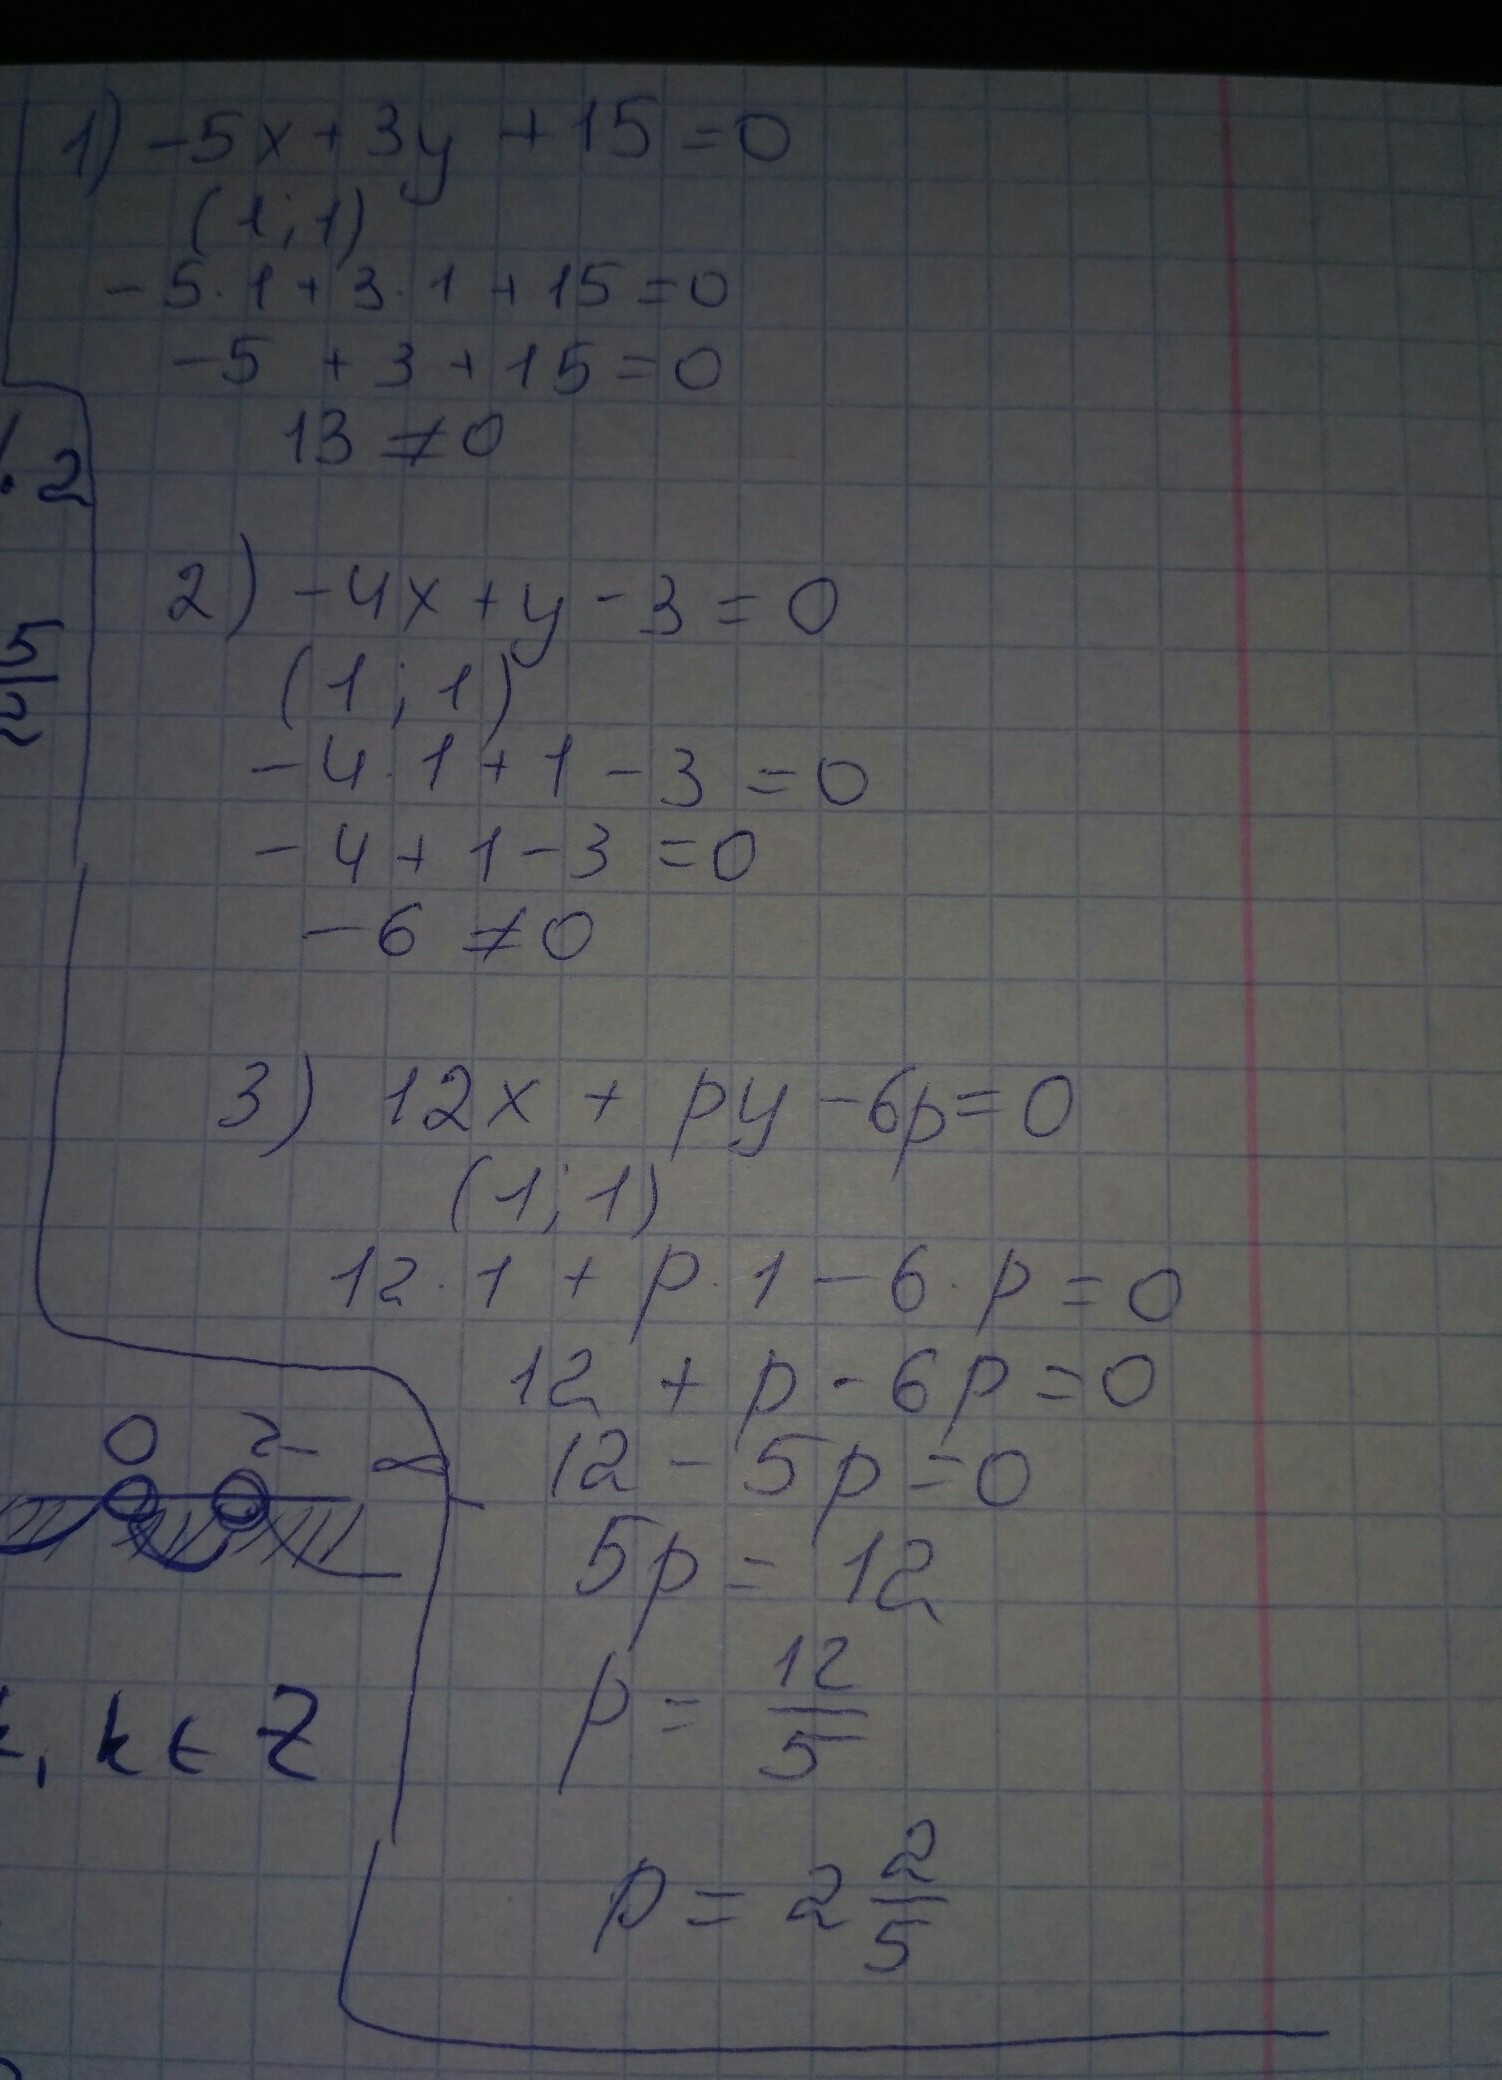 1) -5x+3y+15=0
(1;1)
-5·1+3·1+15=0
-5+3+15=0
13≠0
.2
5
2) -4x+y-3=0
(1;1)
-4·1+1-3=0
-4+1-3=0
-6≠0
3) 12x+py-6p=0
(1;1)
12·1+p·1-6·p=0
12+p-6p=0
0 2
12-5p=0
5p=12
p=12/5
, k∈Z
p=2 2/5